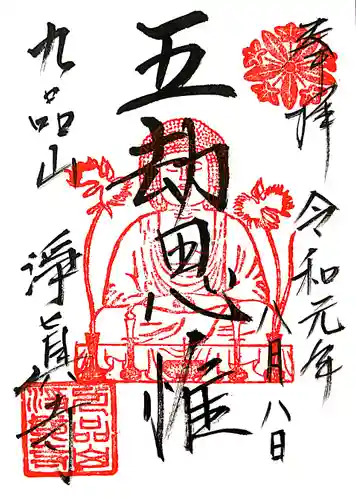 奉拝
令和元年
八月八日
五劫思惟
九品山
淨真寺